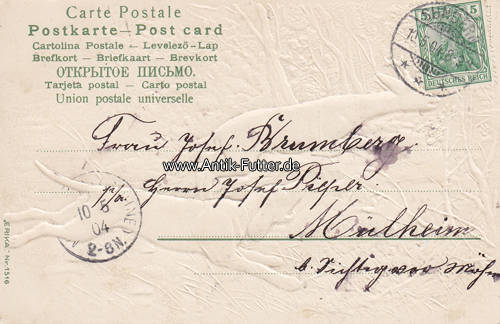 Carte Postale
Postkarte – Post card
Cartolina Postale – Levelező-Lap
Brefkort – Briefkaart – Brevkort
ОТКРЫТОЕ ПИСЬМО.
Tarjeta postal – Carto postal
Union postale universelle
5
DEUTSCHES REICH
Frau Josef Brumberg.
www.Antik-Futter.de
p/a. Herrn Josef
Mülheim
b. Sichtigvor
10 5
04
2-8N.
„ERIKA“ Nr. 1516